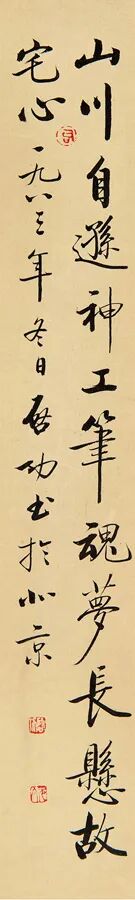 山川自遜神工筆魂夢長懸故
宅心一九八三年冬日啓功書於北京